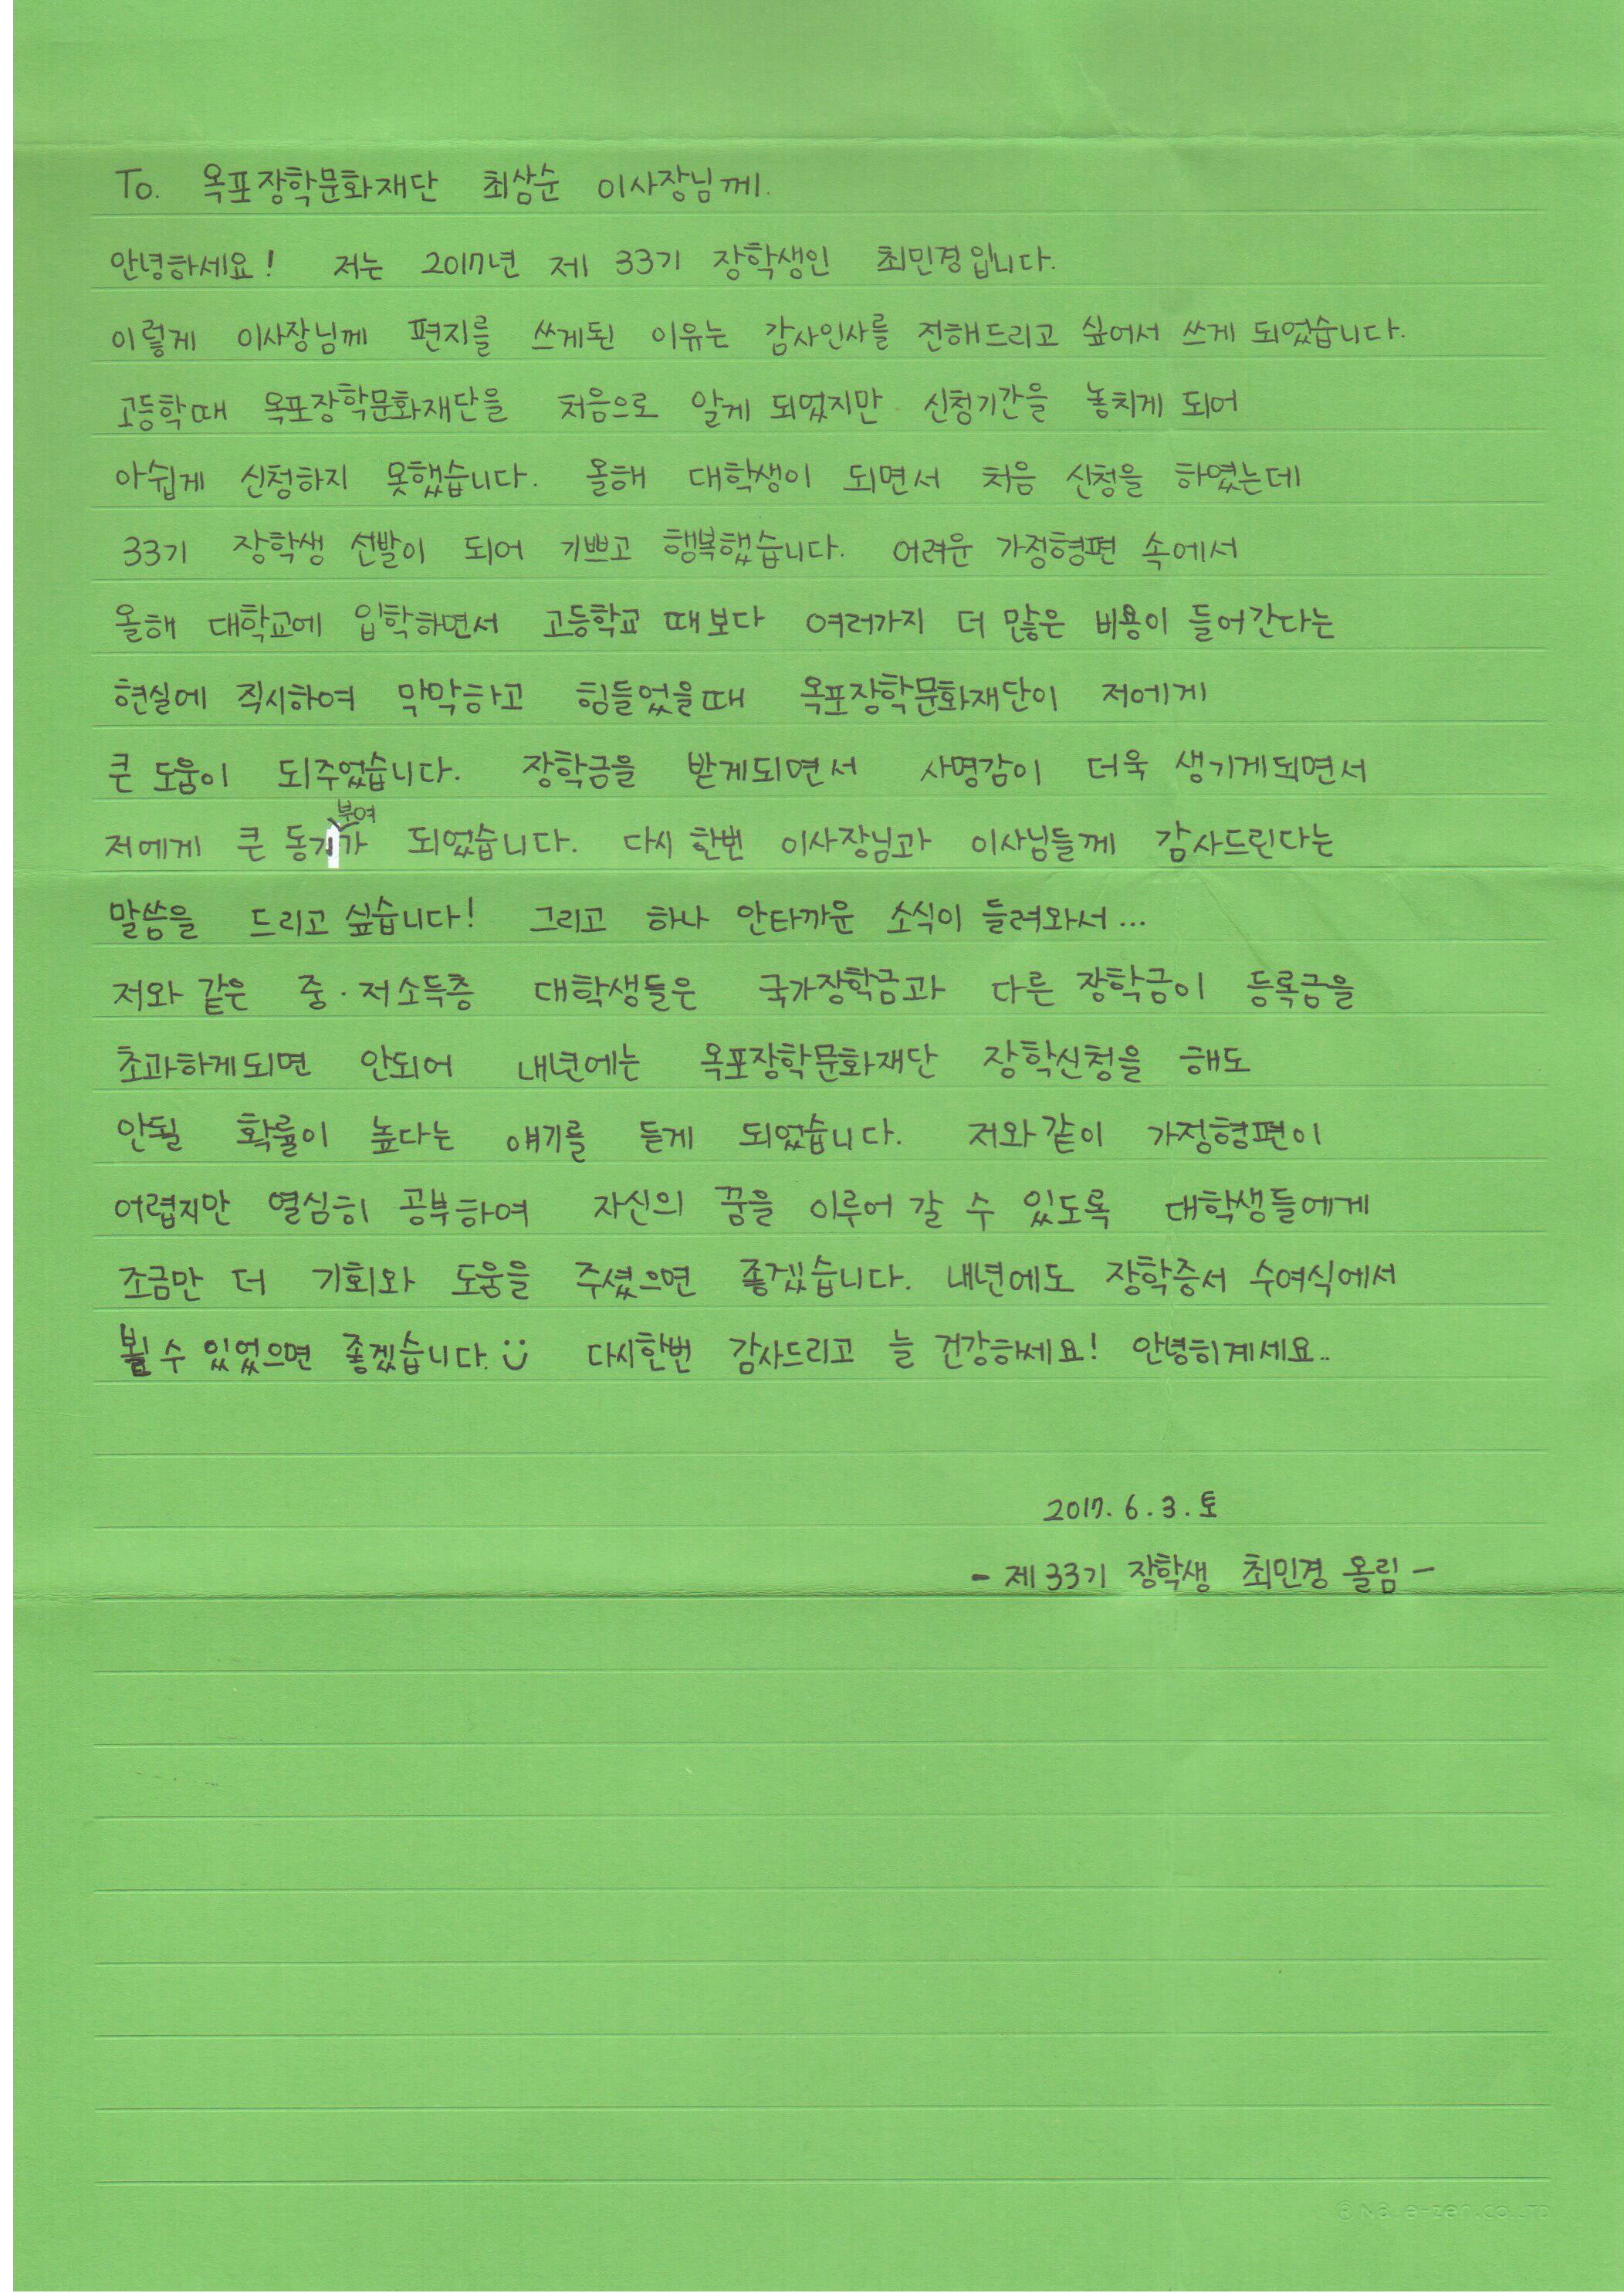 To. 옥포장학문화재단 최삼순 이사장님께.
안녕하세요! 저는 2017년 제 33기 장학생인 최민경입니다.
이렇게 이사장님께 편지를 쓰게된 이유는 감사인사를 전해드리고 싶어서 쓰게 되었습니다.
고등학때 옥포장학문화재단을 처음으로 알게 되었지만 신청기간을 놓치게 되어
아쉽게 신청하지 못했습니다. 올해 대학생이 되면서 처음 신청을 하였는데
33기 장학생 선발이 되어 기쁘고 행복했습니다. 어려운 가정형편 속에서
올해 대학교에 입학하면서 고등학교 때보다 여러가지 더 많은 비용이 들어간다는
현실에 직시하여 막막하고 힘들었을때 옥포장학문화재단이 저에게
큰 도움이 되주었습니다. 장학금을 받게되면서 사명감이 더욱 생기게되면서
저에게 큰 동기부여가 되었습니다. 다시 한번 이사장님과 이사님들께 감사드린다는
말씀을 드리고 싶습니다! 그리고 하나 안타까운 소식이 들려와서...
저와 같은 중·저소득층 대학생들은 국가장학금과 다른 장학금이 등록금을
초과하게되면 안되어 내년에는 옥포장학문화재단 장학신청을 해도
안될 확률이 높다는 얘기를 듣게 되었습니다. 저와같이 가정형편이
어렵지만 열심히 공부하여 자신의 꿈을 이루어 갈 수 있도록 대학생들에게
조금만 더 기회와 도움을 주셨으면 좋겠습니다. 내년에도 장학증서 수여식에서
뵐 수 있었으면 좋겠습니다. 다시한번 감사드리고 늘 건강하세요! 안녕히계세요..
2017. 6. 3. 토
- 제33기 장학생 최민경 올림 -